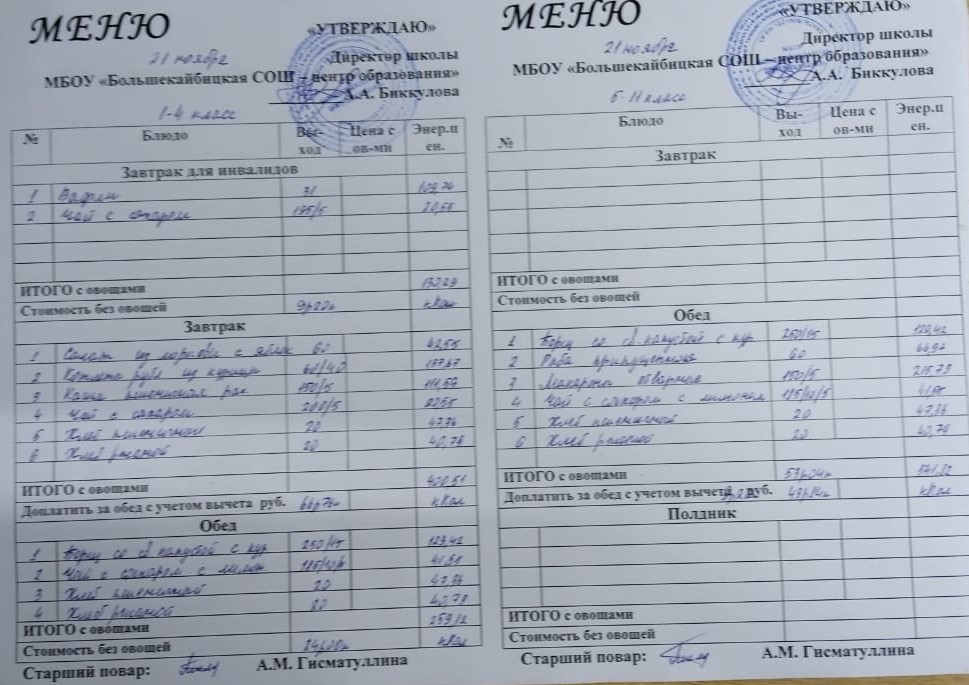 МЕНЮ
«УТВЕРЖДАЮ»
21 ноября
Директор школы
МБОУ «Большекайбицкая СОШ – центр образования»
А.А. Биккулова
1-4 класс
№ Блюдо Вы-ход Цена с ов-ми Энер.ц ен.
Завтрак для инвалидов
1 Вафли 31
2 Чай с сахаром 195/5
ИТОГО с овощами
Стоимость без овощей кКал
Завтрак
1 Салат из моркови с яблок 60 42,55
2 Котлета руб из курицы
3 Каша 150/5 111,59
4 Чай с сахаром 200/5
5 Хлеб пшеничный 20 47,36
6 Хлеб ржаной 20 40,78
ИТОГО с овощами 400,51
Доплатить за обед с учетом вычета руб. кКал
Обед
1 Борщ со св капустой с кур 250/15 129,42
2 Чай с сахаром с лимон 41,55
3 Хлеб пшеничный 20 47,36
4 Хлеб ржаной 20 40,78
ИТОГО с овощами 259,12
Стоимость без овощей кКал
Старший повар: А.М. Гисматуллина
МЕНЮ
«УТВЕРЖДАЮ»
21 ноября
Директор школы
МБОУ «Большекайбицкая СОШ – центр образования»
А.А. Биккулова
5-11 класс
№ Блюдо Вы-ход Цена с ов-ми Энер.ц ен.
Завтрак
ИТОГО с овощами
Стоимость без овощей
Обед
1 Борщ со св.капустой с кур 250/15 129,42
2 Рыба припущенная 60
3 Макароны отварные 150/5
4 Чай с сахаром с лимоном 41,55
5 Хлеб пшеничный 20 47,36
6 Хлеб ржаной 20 40,78
ИТОГО с овощами 541,82
Доплатить за обед с учетом вычета руб. кКал
Полдник
ИТОГО с овощами
Стоимость без овощей
Старший повар: А.М. Гисматуллина